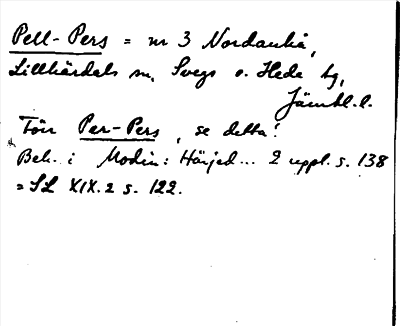 Pell-Pers = nr 3 Nordanhå,
Lillhärdals sn, Svegs o. Hede tg,
Jämtl. l.
Förr Per-Pers, se detta!
Beh. i Modin: Härjed... 2 uppl. s. 138
= SL XIX.2 s. 122.